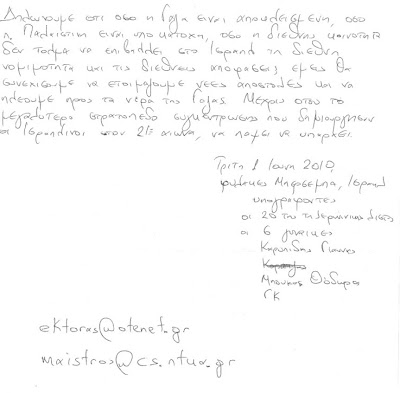 Δηλώνουμε οτι οσο η Γαζα ειναι αποκλεισμένη, οσο
η Παλαιστινη ειναι υπο κατοχη, οσο η διεθνης κοινοτητα
δεν τολμα να επιβαλλει στο Ισραηλ τη διεθνη
νομιμοτητα και τις διεθνεις αποφασεις, εμεις θα
συνεχισουμε να ετοιμαζουμε νεες αποστολες και να
πλεουμε προς τα νερα της Γαζας. Μεχρι οτου το
μεγαλυτερο στρατοπεδο συγκεντρωσης που δημιουργησαν
οι Ισραηλινοι στον 21º αιωνα, να παψει να υπαρχει.
Τριτη 1 Ιουνη 2010,
φυλακες Μπιρσεμπα, Ισραηλ
υπογραφοντες
οι 20 της
οι 6 γυναικες
Καρυπιδης Γιαννης
Μπουκας Θοδωρα
ΓΚ
ektoras@otenet.gr
maistros@cs.ntua.gr